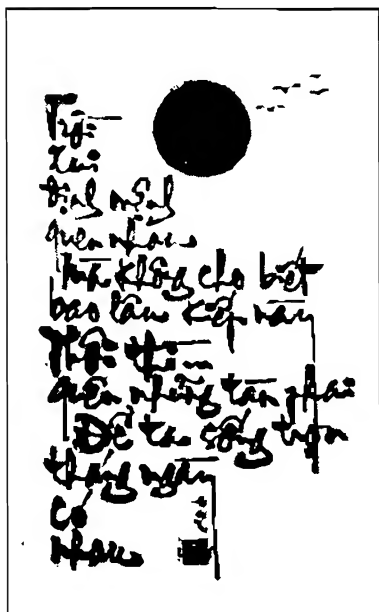 Trời
xui
định mệnh
quen nhau
Mà không cho biết
bao lâu kiếp này
Thôi thì
quên những tàn phai
Để ta sống trọn
tháng ngày
có
nhau